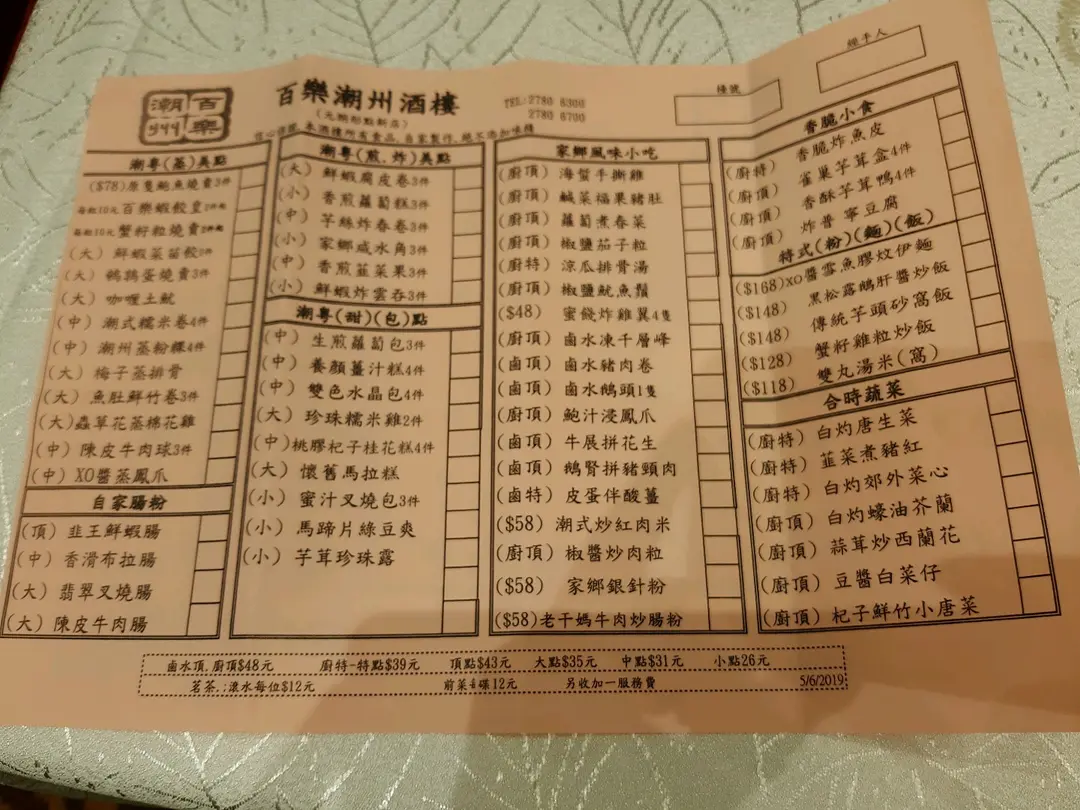 潮百
州樂
百樂潮州酒樓
(元朗形點新店)
TEL:2780 6300
2780 6700
檯號
經手人
信心保證,本酒樓所有食品,自家製作,絕不添加味精
潮粵(蒸)美點
($78)原隻鮑魚燒賣3件
百樂蝦餃皇
蟹籽粒燒賣
(大) 鮮蝦菜苗餃3件
(大) 鵪鶉蛋燒賣3件
(大) 咖喱土魷
(中) 潮式糯米卷4件
(中) 潮州蒸粉粿4件
(大) 梅子蒸排骨
(大) 魚肚鮮竹卷3件
(大)蟲草花蒸棉花雞
(中) 陳皮牛肉球3件
(中) XO醬蒸鳳爪
自家腸粉
(頂) 韭王鮮蝦腸
(中) 香滑布拉腸
(大) 翡翠叉燒腸
(大) 陳皮牛肉腸
潮粵(煎.炸)美點
(大) 鮮蝦腐皮卷3件
(小) 香煎蘿蔔糕3件
(中) 芋絲炸春卷3件
(小) 家鄉咸水角3件
(中) 香煎韮菜果3件
(小) 鮮蝦炸雲吞3件
潮粵(甜)(包)點
(中) 生煎蘿蔔包3件
(中) 養顏薑汁糕4件
(中) 雙色水晶包4件
(大) 珍珠糯米雞2件
(中)桃膠杞子桂花糕4件
(大) 懷舊馬拉糕
(小) 蜜汁叉燒包3件
(小) 馬蹄片綠豆爽
(小) 芋茸珍珠露
家鄉風味小吃
(廚頂) 海蜇手撕雞
(廚頂) 鹹菜福果豬肚
(廚頂) 蘿蔔煮春菜
(廚頂) 椒鹽茄子粒
(廚特) 涼瓜排骨湯
(廚頂) 椒鹽魷魚鬚
($48) 蜜餞炸雞翼4隻
(廚頂) 鹵水凍千層峰
(鹵頂) 鹵水豬肉卷
(鹵頂) 鹵水鵝頭1隻
(廚頂) 鮑汁浸鳳爪
(鹵頂) 牛展拼花生
(鹵頂) 鵝腎拼豬頸肉
(鹵特) 皮蛋伴酸薑
($58) 潮式炒紅肉米
(廚頂) 椒醬炒肉粒
($58) 家鄉銀針粉
($58)老干媽牛肉炒腸粉
香脆小食
(廚特) 香脆炸魚皮
(廚頂) 雀巢芋茸盒4件
(廚頂) 香酥芋茸鴨4件
(廚頂) 炸普寧豆腐
特式(粉)(麵)(飯)
($168)xo醬雪魚膠炆伊麵
($148) 黑松露鵝肝醬炒飯
($148) 傳統芋頭砂窩飯
($128) 蟹籽雞粒炒飯
($118) 雙丸湯米(窩)
合時蔬菜
(廚特) 白灼唐生菜
(廚特) 韮菜煮豬紅
(廚特) 白灼郊外菜心
(廚頂) 白灼蠔油芥蘭
(廚頂) 蒜茸炒西蘭花
(廚頂) 豆醬白菜仔
(廚頂) 杞子鮮竹小唐菜
鹵水頂.廚頂$48元 廚特-特點$39元 頂點$43元 大點$35元 中點$31元 小點26元
茗茶.:滾水每位$12元 前菜 碟12元 另收加一服務費 5/6/2019